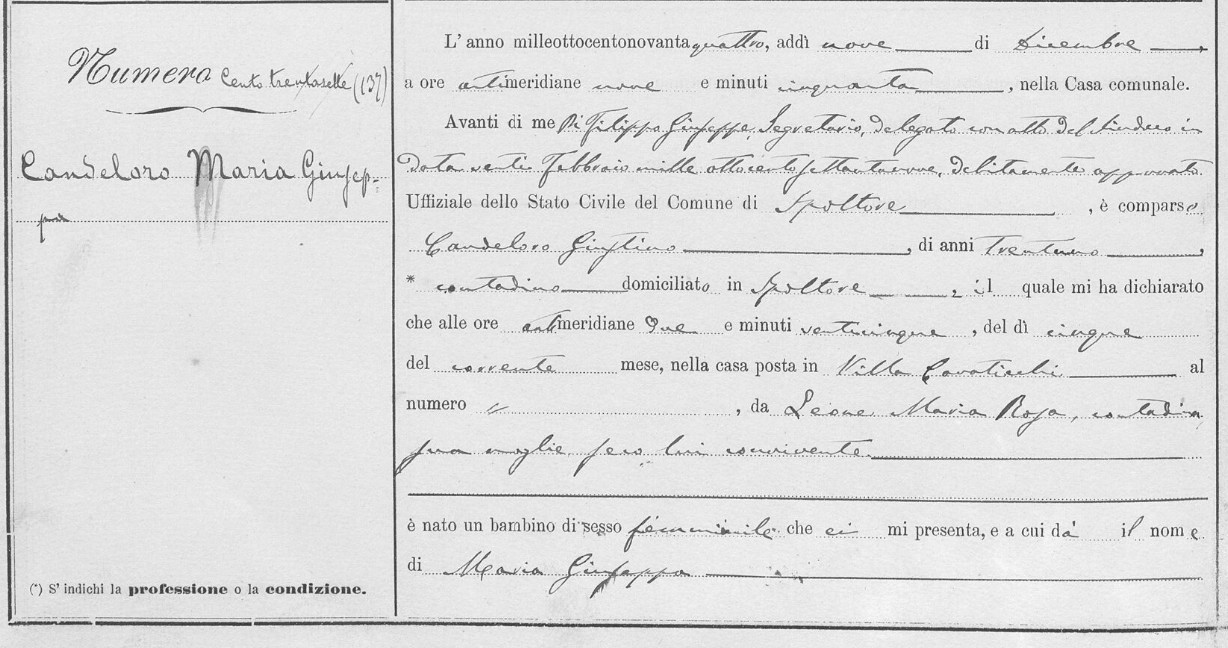 Numero Cento trentasette (137)
Candeloro Maria Giusep-
pa
(*) S' indichi la professione o la condizione.
L' anno milleottocentonovantaquattro, addì nove di Dicembre,
a ore antimeridiane nove e minuti cinquanta, nella Casa comunale.
Avanti di me Di Filippo Giuseppe, Segretario, delegato con atto del Sindaco in
data venti Febbraio mille ottocento settantanove, debitamente approvato
Uffiziale dello Stato Civile del Comune di Spoltore, è comparso
Candeloro Giustino, di anni trentuno,
* contadino domiciliato in Spoltore, il quale mi ha dichiarato
che alle ore antimeridiane due e minuti venticinque, del dì cinque
del corrente mese, nella casa posta in Villa Cavaticchi al
numero „ , da Leone Maria Rosa, contadina,
sua moglie, seco lui convivente
è nato un bambino di sesso femminile che ei mi presenta, e a cui dà il nome
di Maria Giuseppa